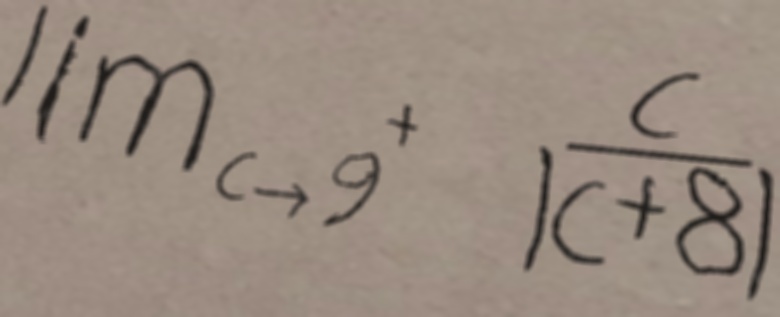 \lim_{c \to 9^+} \frac{c}{|c+8|}